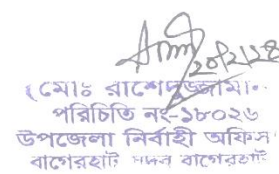 ২০/২/২৪
(মোঃ রাশেদুজ্জামান)
পরিচিতি নং-১৮০২৬
উপজেলা নির্বাহী অফিস
বাগেরহাট সদর বাগেরহাট